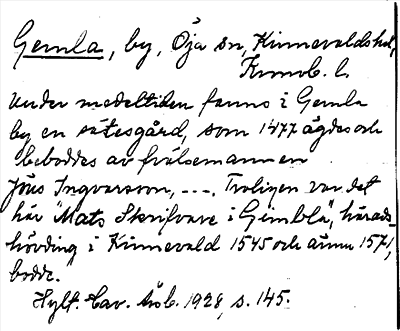 Gemla, by, Öja sn, Kinnevaldshd,
Kronob. l.
Under medeltiden fanns i Gemla
by en sätesgård, som 1477 ägdes och
beboddes av frälsemannen
Jöns Ingvarsson, ---. Troligen var det
här "Mats Skrifvare i Gimbla", härads-
hövding i Kinnevald 1545 och ännu 1571,
bodde.
Hylt. Cav. årsb. 1928, s. 145.